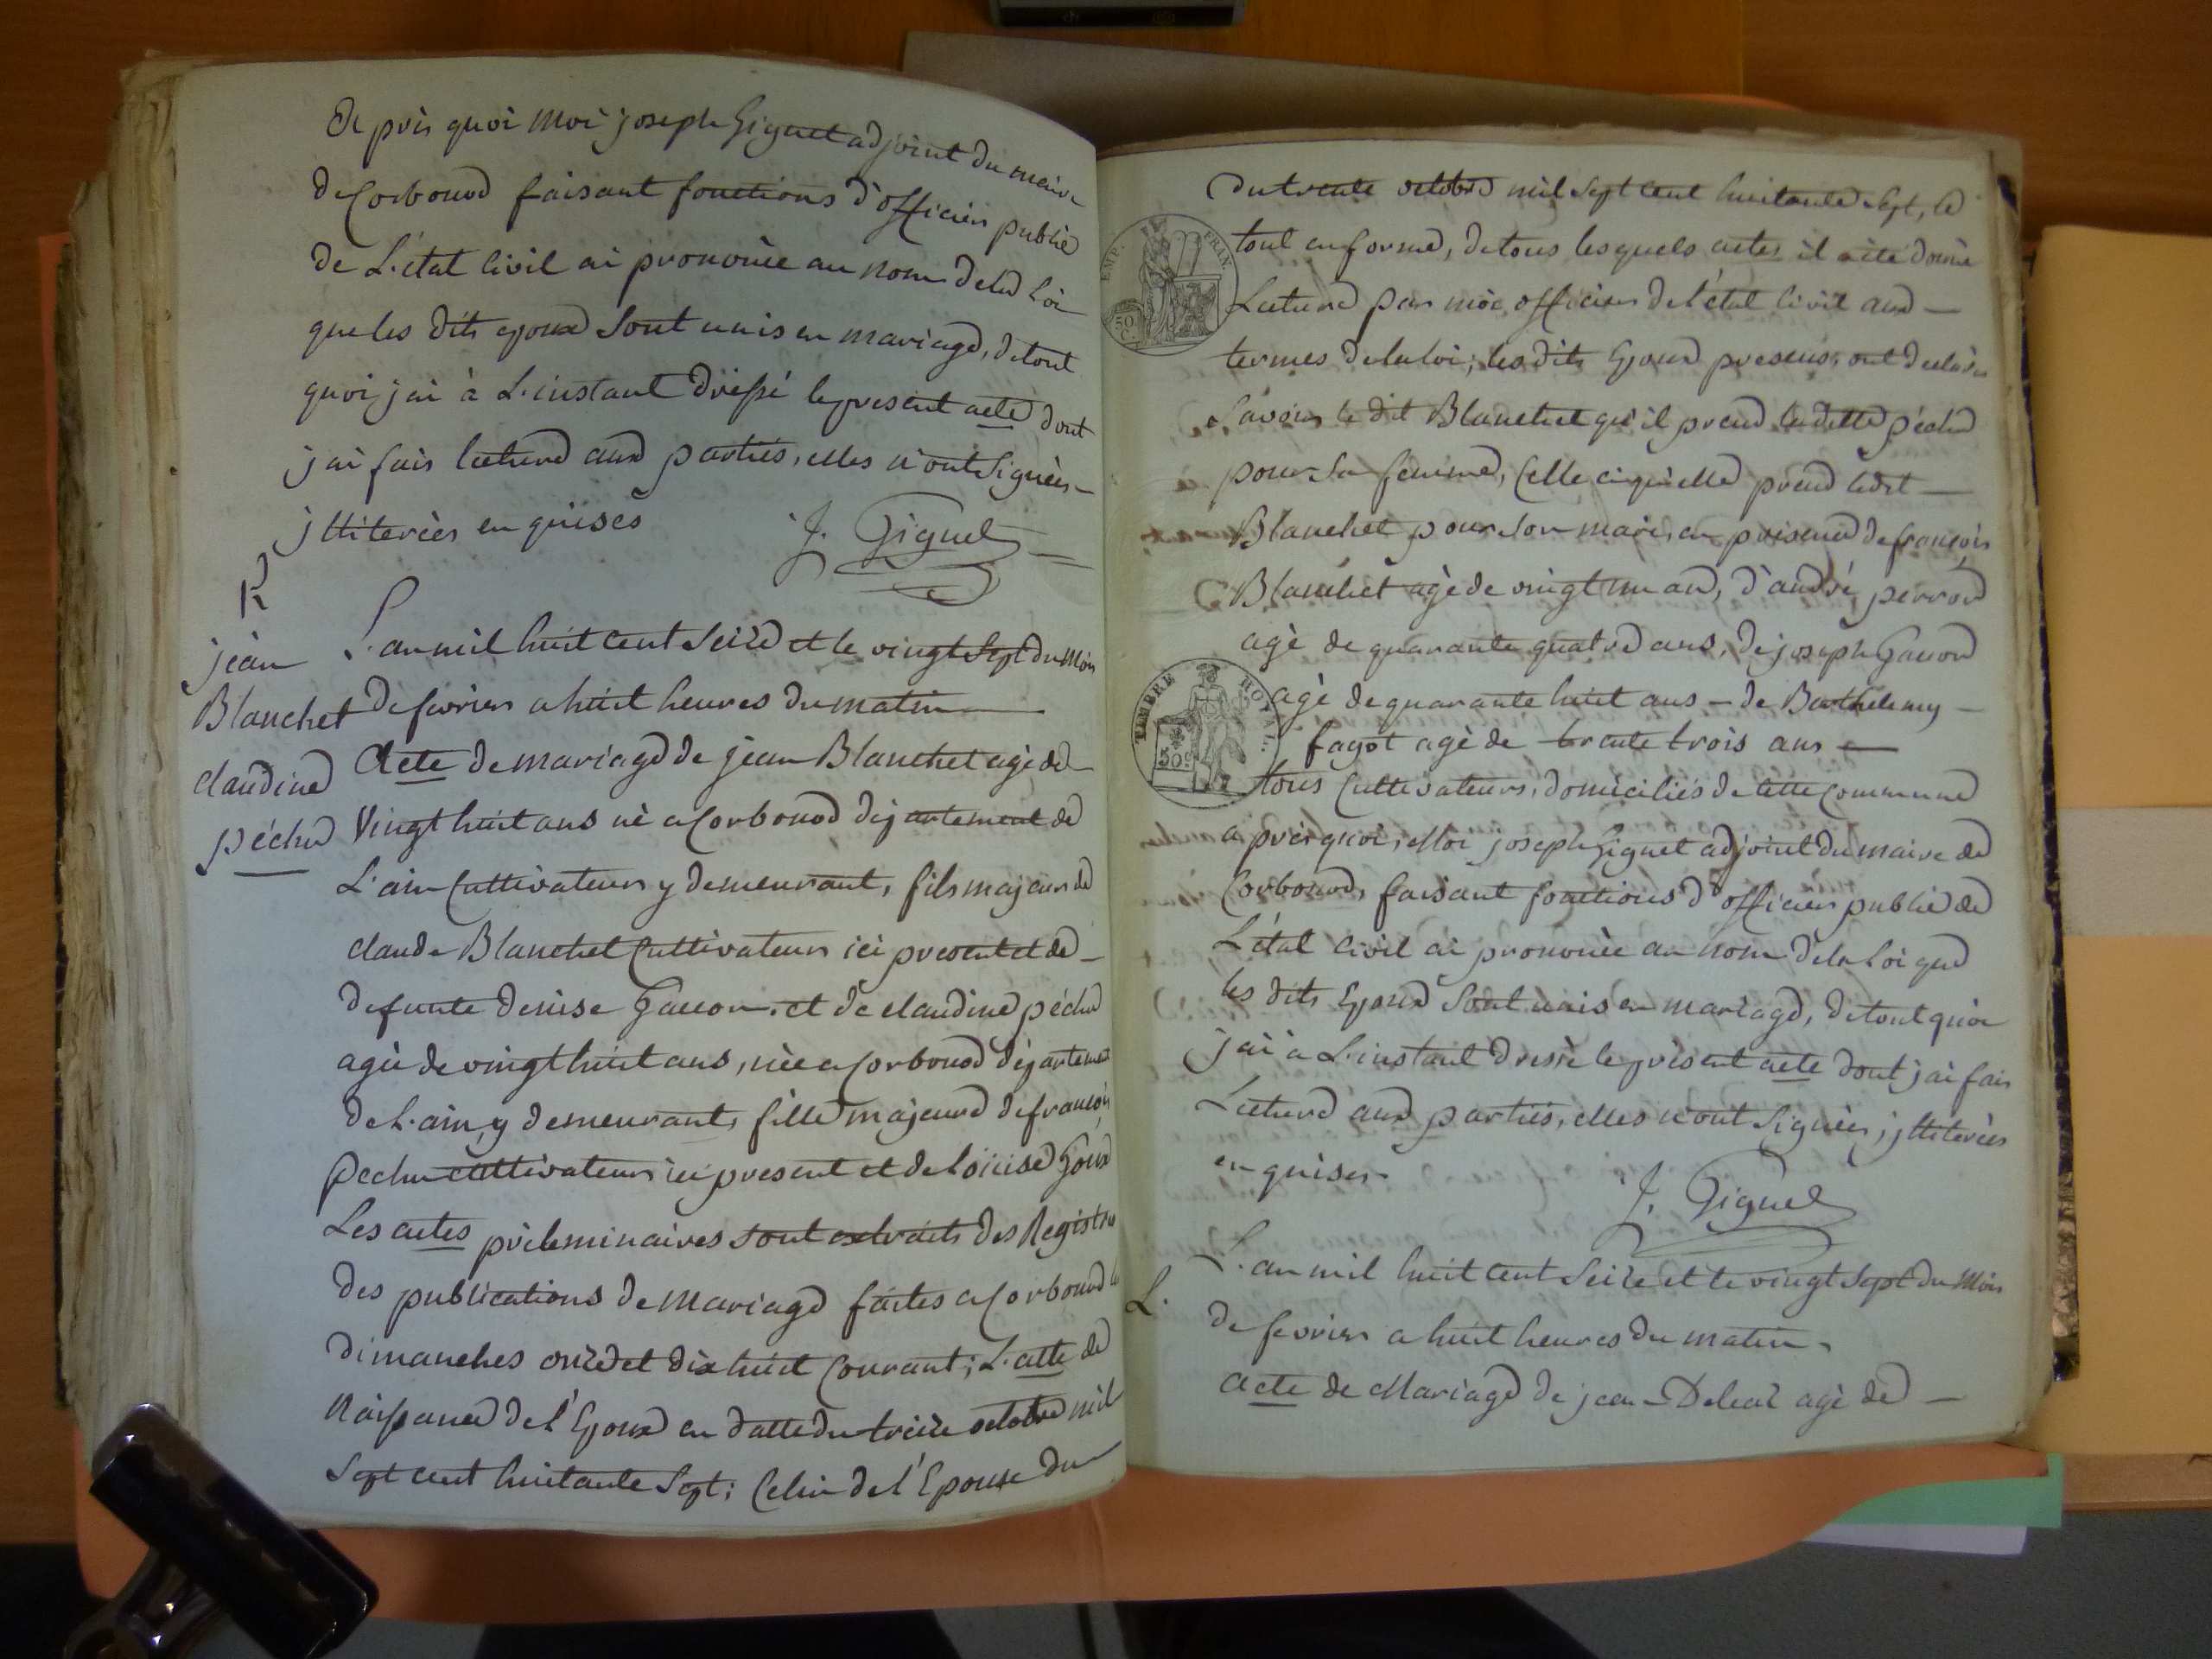 Et près quoi moi joseph Giguet adjoint du maire
de Corbonod faisant fonctions d'officier public
de L'état civil ai prononcée au nom de la Loi
que les dits epoux sont unis en mariage, de tout
quoi jai à L'instant dressé le present acte dont
jai fais lecture aux parties, elles n'ont signées
jlliterées en quises J. Giguet
K
jean
Blanchet
claudine
péchu
L'an mil huit cent seize et le vingt sept du mois
de fevrier a huit heures du matin
Acte de mariage de jean Blanchet agé de
Vingt huit ans né a Corbonod departement de
L'ain Cultivateur y demeurant, fils majeur de
claude Blanchet Cultivateur ici present et de
defunte denise Gallon. et de claudine péchu
agée de vingt huit ans, née a Corbonod département
de L'ain, y demeurant, fille majeure de françois
Pechu cultivateur ici present et de Loüise Goux
Les actes préleminaires sont extraits des Registres
des publications de mariage faites a Corbonod les
dimanches onze et dix huit Courant; L'acte de
Naissance de l'Epoux en datte du treize octobre mil
Sept cent huitante Sept; Celui de l'Epouse du
EMP. FRAN.
50
C.
du trente octobre mil Sept Cent huitante Sept, le
tout en forme, de tous lesquels actes il a été donné
Lecture par moi officier de l'état civil aux
termes de la loi; les dits Epoux presens, ont déclarés
Savoir le dit Blanchet qu'il prend la ditte péchu
pour sa femme, Celle ci qu'elle prend ledit
Blanchet pour son mari, en presence de françois
Blanchet agé de vingt un ans, d'andré perrod
agé de quarante quatre ans, de joseph Gallon
TIMBRE ROYAL
50c
agé de quarante huit ans – de Barthelemy
fagot agé de trente trois ans
tous Cultivateurs, domiciliés de cette Commune
a près quoi, Moi joseph Giguet adjoint du maire de
Corbonod, faisant fonctions d'officier public de
L'état civil ai pronouée au nom de la Loi que
les dits Epoux sont unis en mariage, de tout quoi
jai a L'instant dressé le présent acte dont jai fais
Lecture aux parties, elles n'ont signées, jlliterées
en quises. J. Giguet
L.
L'an mil huit cent Seize et le vingt Sept du Mois
de fevrier a huit heures du matin
Acte de Mariage de jean Deleaz agé de